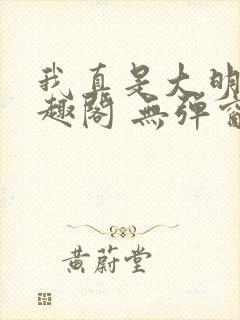 我真是大明
趣阁 無彈窗
黄蔚堂